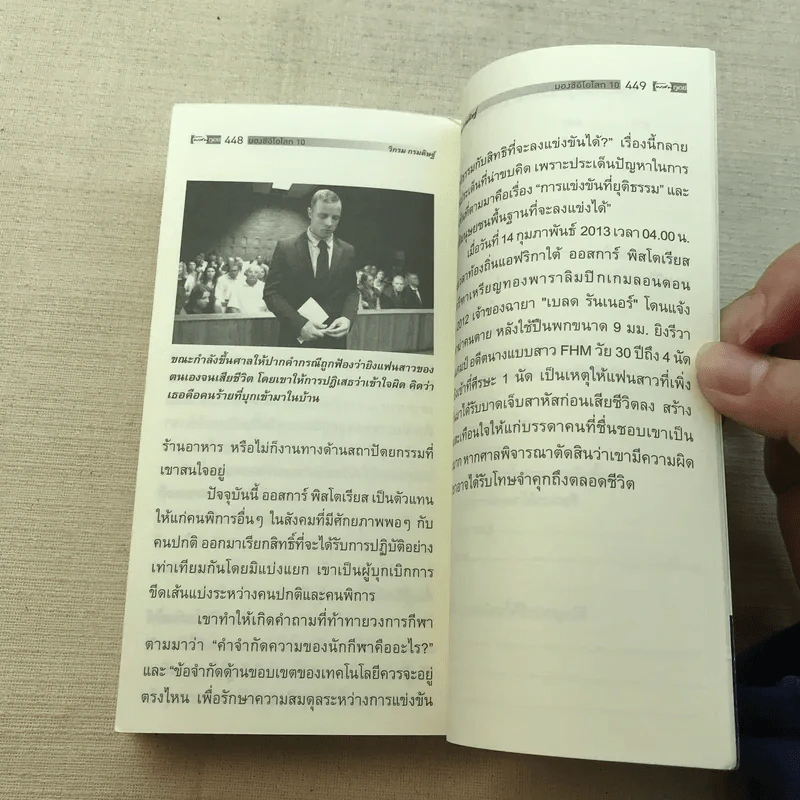 448 มองซีอีโอโลก 10
วิกรม กรมดิษฐ์
ขณะกำลังขึ้นศาลให้ปากคำกรณีถูกฟ้องว่ายิงแฟนสาวของ
ตนเองจนเสียชีวิต โดยเขาให้การปฏิเสธว่าเข้าใจผิด คิดว่า
เธอคือคนร้ายที่บุกเข้ามาในบ้าน
ร้านอาหาร หรือไม่ก็งานทางด้านสถาปัตยกรรมที่
เขาสนใจอยู่
ปัจจุบันนี้ ออสการ์ พิสโตเรียส เป็นตัวแทน
ให้แก่คนพิการอื่นๆ ในสังคมที่มีศักยภาพพอๆ กับ
คนปกติ ออกมาเรียกสิทธิ์ที่จะได้รับการปฏิบัติอย่าง
เท่าเทียมกันโดยมิแบ่งแยก เขาเป็นผู้บุกเบิกการ
ขีดเส้นแบ่งระหว่างคนปกติและคนพิการ
เขาทำให้เกิดคำถามที่ท้าทายวงการกีฬา
ตามมาว่า “คำจำกัดความของนักกีฬาคืออะไร?”
และ “ข้อจำกัดด้านขอบเขตของเทคโนโลยีควรจะอยู่
ตรงไหน เพื่อรักษาความสมดุลระหว่างการแข่งขัน
มองซีอีโอโลก 10 449
กับสิทธิที่จะลงแข่งขันได้?” เรื่องนี้กลาย
ประเด็นที่น่าขบคิด เพราะประเด็นปัญหาในการ
ที่ตามมาคือเรื่อง “การแข่งขันที่ยุติธรรม” และ
พื้นฐานที่จะลงแข่งได้”
เมื่อวันที่ 14 กุมภาพันธ์ 2013 เวลา 04.00 น.
ท้องถิ่นแอฟริกาใต้ ออสการ์ พิสโตเรียส
เหรียญทองพาราลิมปิกเกมลอนดอน
2012 เจ้าของฉายา "เบลด รันเนอร์" โดนแจ้ง
คนตาย หลังใช้ปืนพกขนาด 9 มม. ยิงรีวา
อดีตนางแบบสาว FHM วัย 30 ปีถึง 4 นัด
เข้าที่ศีรษะ 1 นัด เป็นเหตุให้แฟนสาวที่เพิ่ง
ได้รับบาดเจ็บสาหัสก่อนเสียชีวิตลง สร้าง
สะเทือนใจให้แก่บรรดาคนที่ชื่นชอบเขาเป็น
มาก หากศาลพิจารณาตัดสินว่าเขามีความผิด
อาจได้รับโทษจำคุกถึงตลอดชีวิต